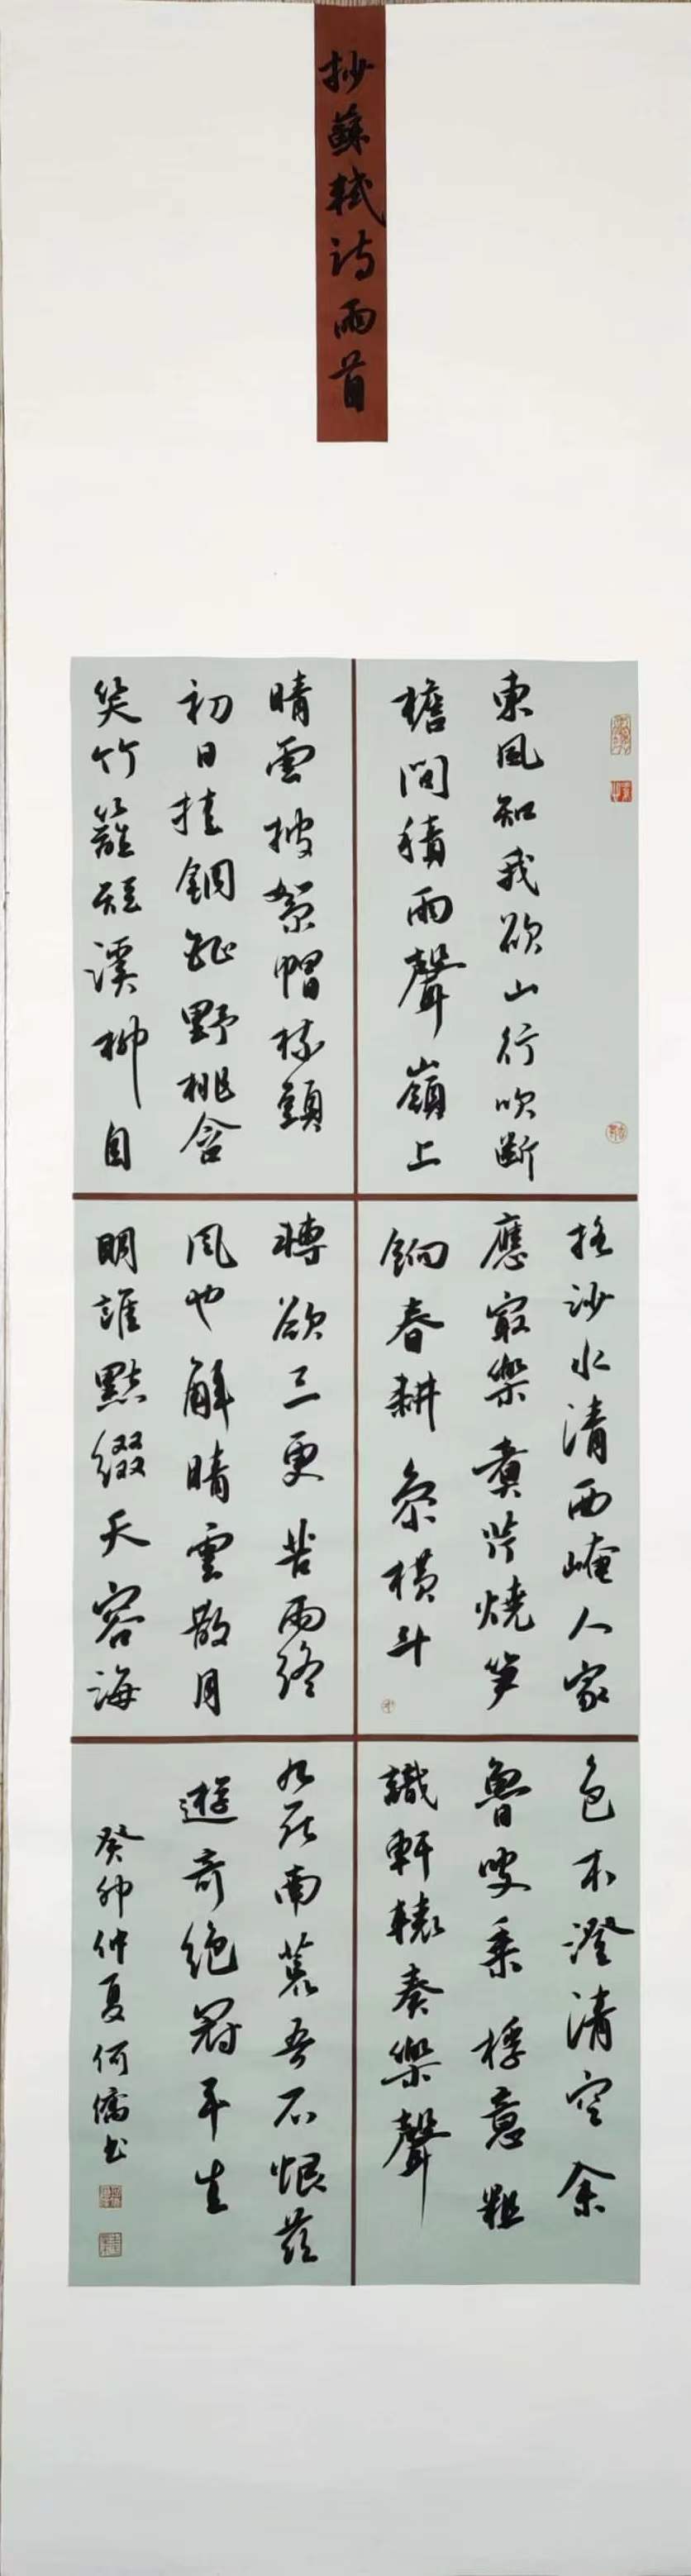 抄蘇軾诗兩首
東風知我欲山行吹断
檐間積雨聲嶺上
晴雲披絮帽樹頭
初日挂銅鉦野桃含
笑竹籬短溪柳自
摇沙水清西崦人家
應最樂煮芹燒笋
餉春耕 参横斗
轉欲三更苦雨終
風也解晴雲散月
明誰點綴天容海
色本澄清空余
魯叟乘桴意粗
識軒轅奏樂聲
九死南荒吾不恨茲
遊奇絶冠平生
癸卯仲夏何僑书